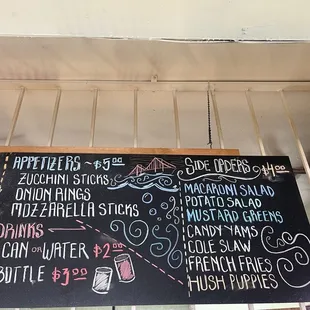 APPETIZERS ~ $5.00
ZUCCHINI STICKS
ONION RINGS
MOZZARELLA STICKS
DRINKS
CAN OR WATER $2.00
BOTTLE $3.00
SIDE ORDERS $4.00
MACARONI SALAD
POTATO SALAD
MUSTARD GREENS
CANDY YAMS
COLE SLAW
FRENCH FRIES
HUSH PUPPIES